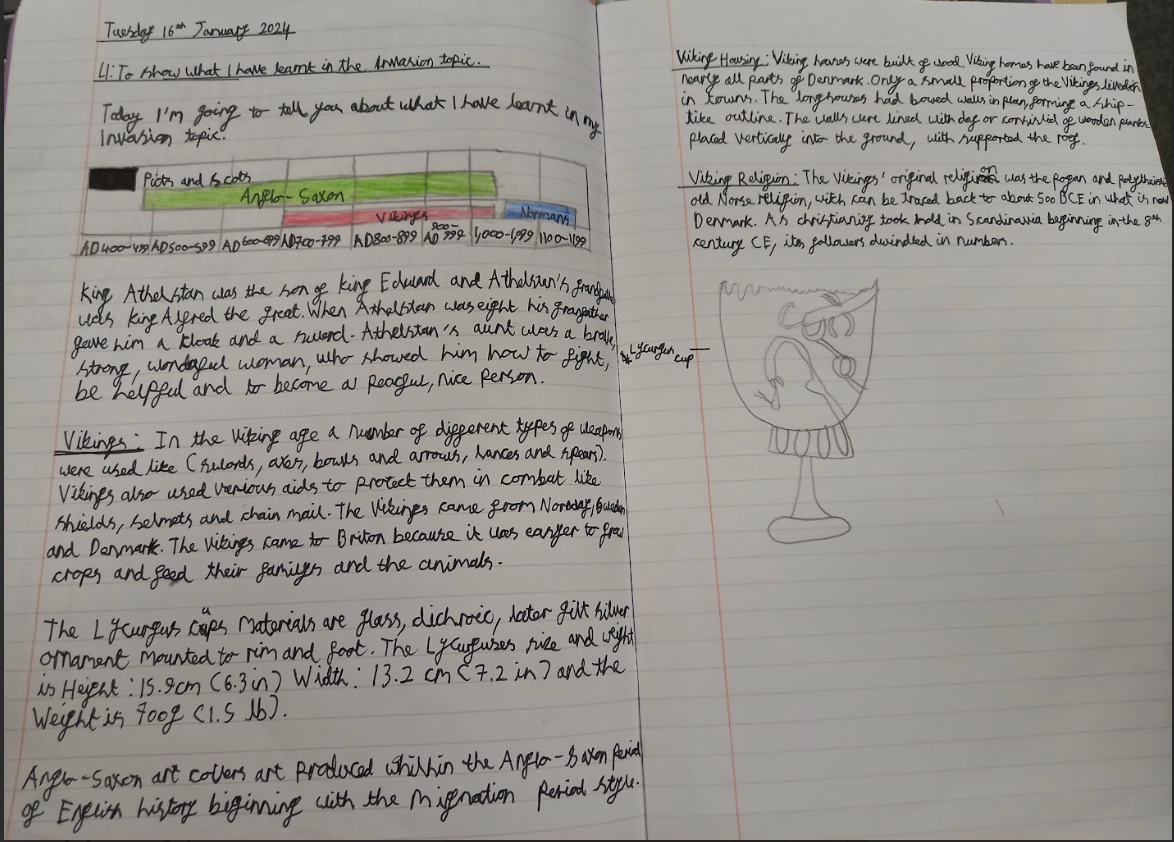 Tuesday 16th January 2024
LI: To show what I have learnt in the Invasion topic.
Today I'm going to tell you about what I have learnt in my
Invasion topic.
Picts and Scots
Anglo-Saxon
Vikings
Normans
AD400-499 AD500-599 AD600-699 AD700-799 AD800-899 AD900-999 1,000-1,099 1100-1199
King Athelstan was the son of king Edward and Athelstan's
was king Alfred the great. When Athelstan was eight his
gave him a kloak and a sword. Athelstan's aunt was a brave,
strong, wonderful woman, who showed him how to fight,
be helpful and to become a peaceful, nice person.
Vikings: In the Viking age a number of different types of weapons
were used like (swords, axes, bowls and arrows, lances and spears).
Vikings also used various aids to protect them in combat like
shields, helmets and chain mail. The Vikings came from Norway, Sweden
and Denmark. The Vikings came to Briton because it was easyer to grow
crops and feed their familys and the animals.
The Lycurgus cups materials are glass, dichroic, later gilt silver
ornament mounted to rim and foot. The Lycurguses size and weight
is Height: 15.9cm (6.3in) Width: 13.2 cm (7.2 in) and the
Weight is 700g (1.5 lb).
Anglo-Saxon art covers art produced whithin the Anglo-Saxon period
of English history beginning with the Migration period style.
Viking Housing: Viking houses were built of wood. Viking homes have been found in
nearly all parts of Denmark. Only a small proportion of the Vikings lived
in towns. The longhouses had bowed walls in plan, forming a ship-
like outline. The walls were lined with or consistid of wooden planks
placed vertically into the ground, with supported the roof.
Viking Religion: The Vikings' original religion was the pagan and
old Norse religion, witch can be traced back to about 500 BCE in what is now
Denmark. As christianity took hold in Scandinavia beginning in the 8th
century CE, its followers dwindled in numbers.
*Lycurgus
cup